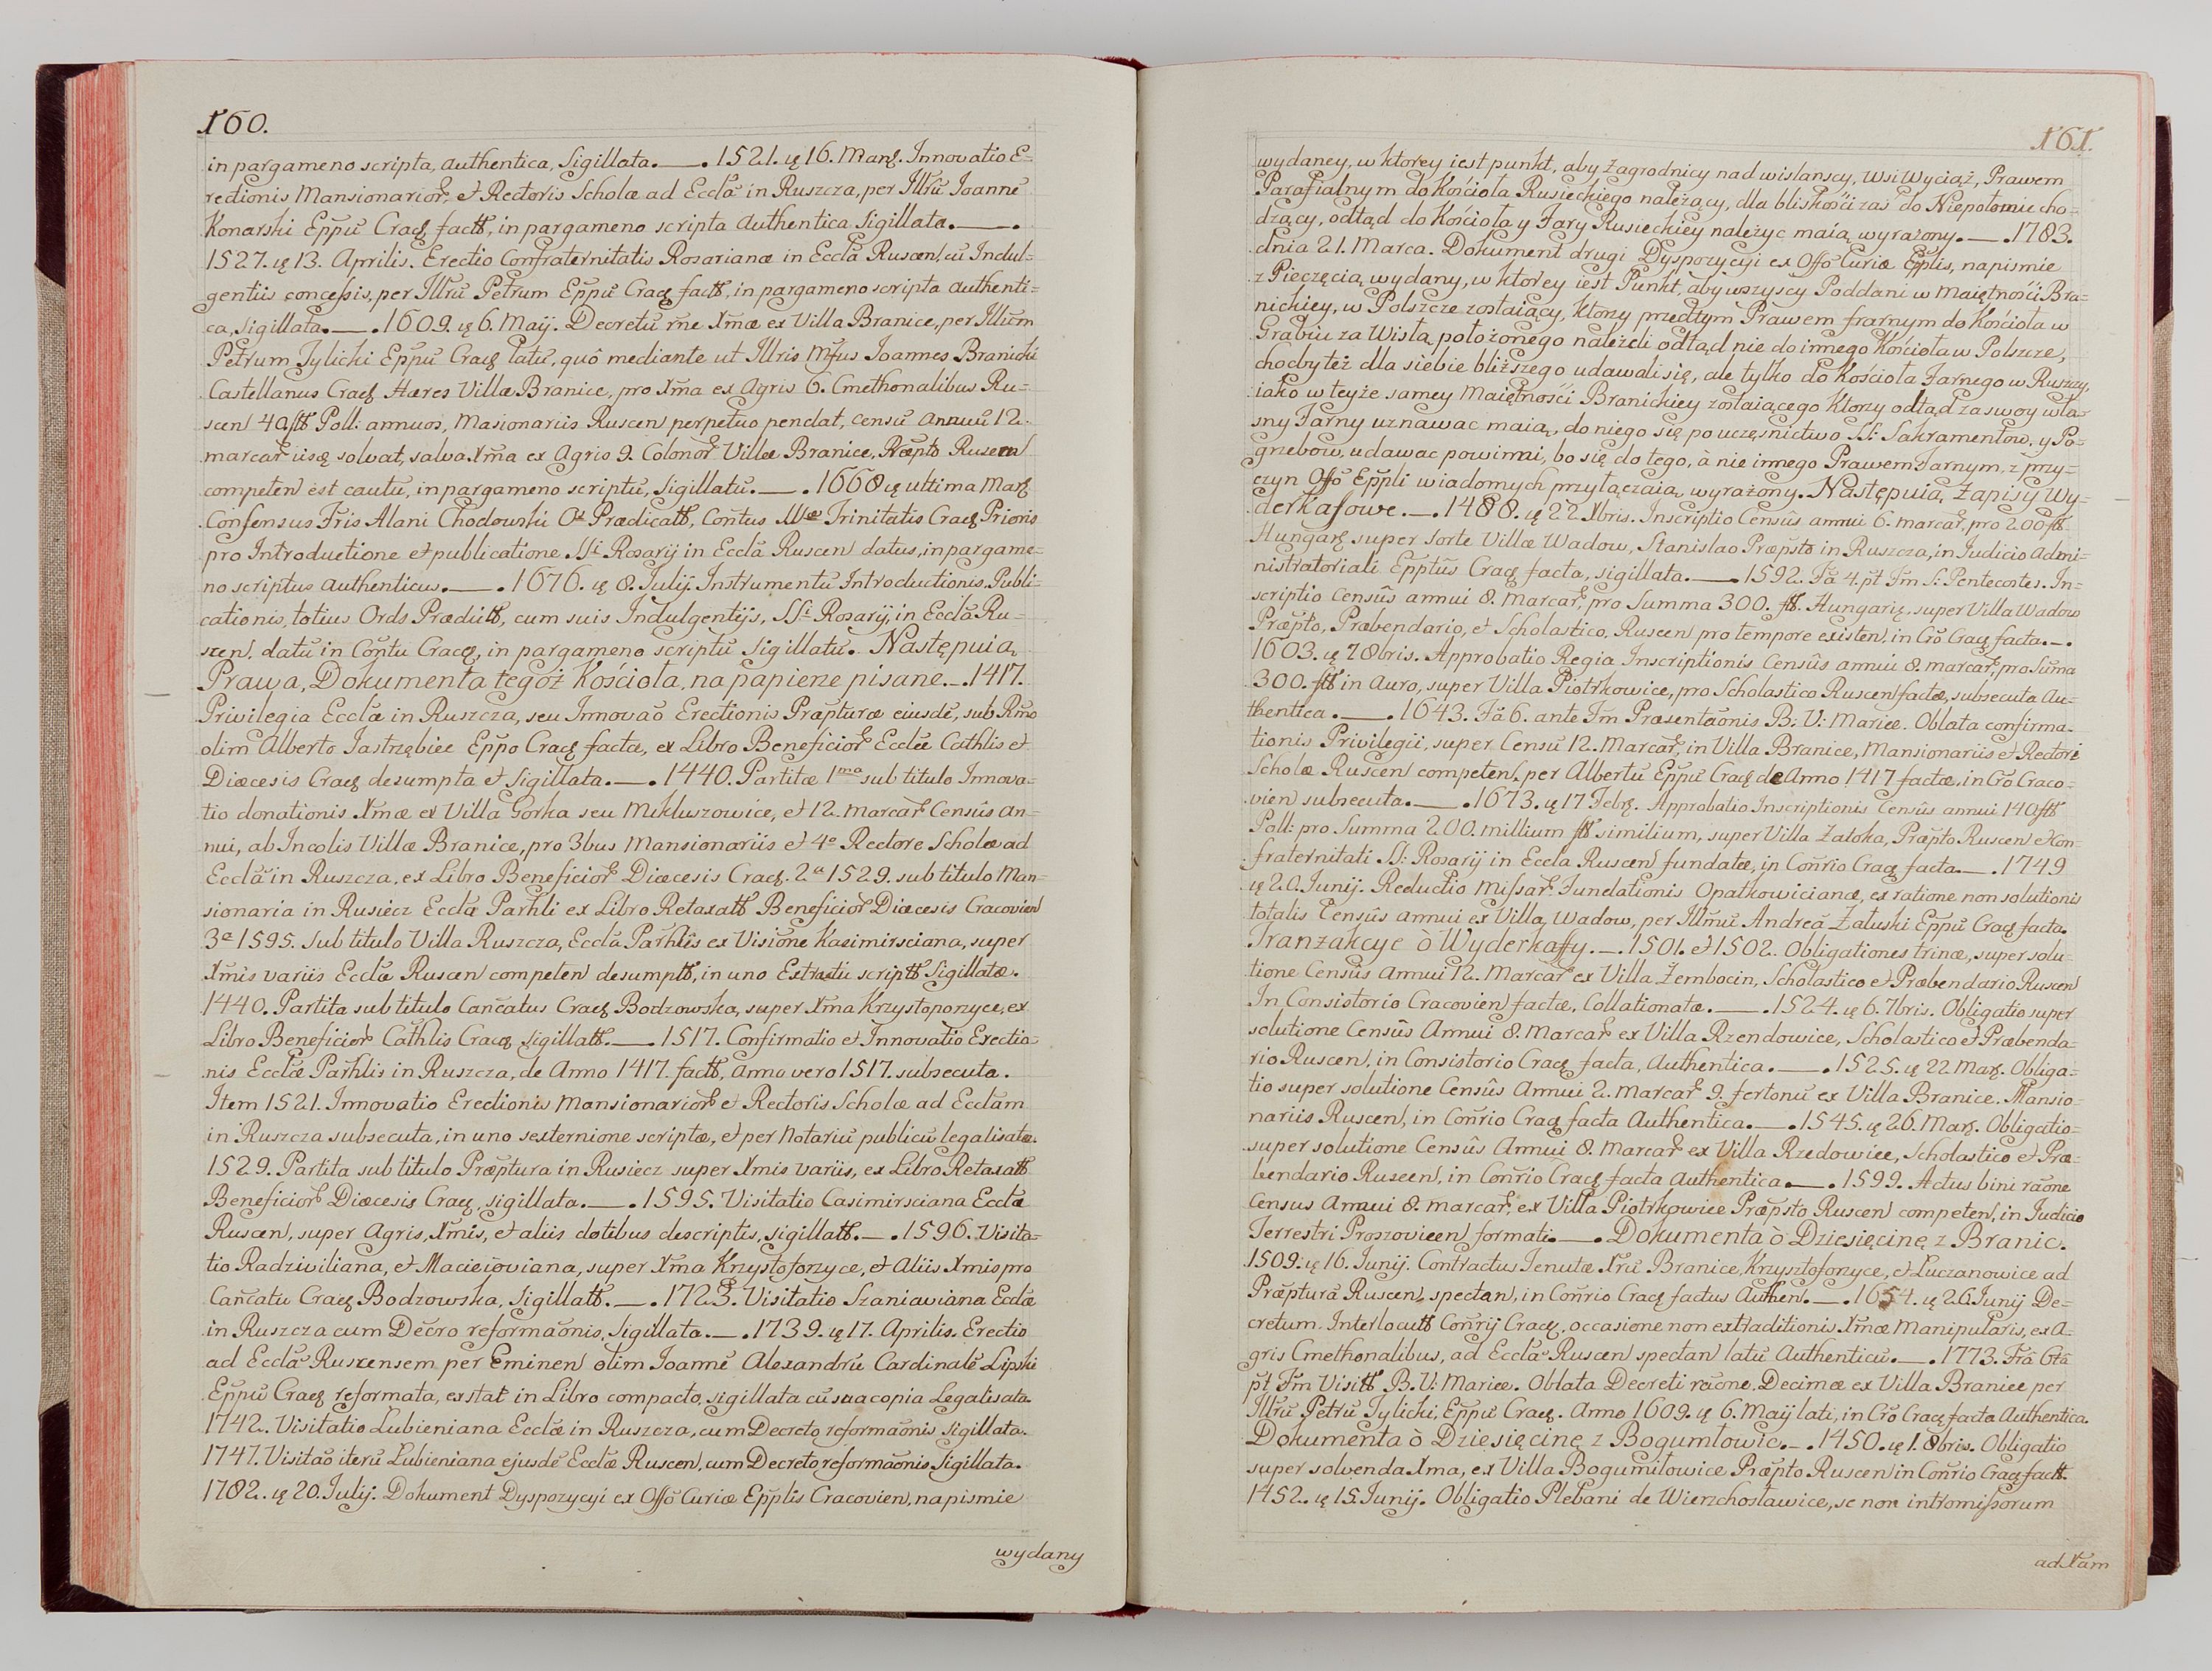 160.
in pargameno scripta, authentica, Sigillata.—.1521. ię 16. Marȝ. Innovatio E=
rectionis Mansionarior̃, et Rectoris Scholæ ad Ecclã in Ruszcza, per Illrũ Joannẽ
Konarski Eppũ Cracȝ factt, in pargameno scripta authentica Sigillata.—.
1527. ię 13. Aprilis. Erectio Confraternitatis Rosarianæ in Ecclã Ruscen, cũ Indul=
gentiis concessis, per Illrũ Petrum Eppũ Cracȝ factt, in pargameno scripta authenti=
ca, Sigillata.—.1609. ię 6. Maij. Decretũ rñe Xmæ ex Villa Branice, per Illũm
Petrum Tylicki Eppũ Cracȝ latũ, quô mediante ut Illris Mfus Joannes Branicki
Castellanus Cracȝ Hæres Villæ Branice, pro Xma ex Agris 6. Cmethonalibus Ru=
scen 40 ftt Poll: annuos, Masionariis Ruscen perpetuo pendat, censũ annuũ 12.
marcar̃ iisȝ solvat, salva Xma ex Agris 9. Colonor̃ Villæ Branice, Præpto Ruscen
competen est cautũ, in pargameno scriptũ, Sigillatũ.—.1668 ię ultima Marȝ
Consensus Fris Alani Chodowski Os Prædicatt, Contus SSæ Trinitatis Cracȝ Prioris
pro Introductione et publicatione SSi Rosarij in Ecclã Ruscen datus, in pargame=
no scriptus authenticus.—.1676. ię 8. Julij. Instrumentũ Introductionis, Publi=
cationis, totius Ords Prædictt, cum suis Indulgentijs, SSi Rosarij, in Ecclã Ru=
scen, datũ in Contu Cracȝ, in pargameno scriptũ Sigillatũ. Następuią
Prawa, Dokumenta tegoż Kościoła, na papierze pisane.—.1417.
Privilegia Ecclæ in Ruszcza, seu Innovaõ Erectionis Præpturæ eiusdẽ, sub Rmo
olim Alberto Jastrzębiec Eppo Cracȝ facta, ex Libro Beneficior̃ Ecclæ Cathlis et
Diæcesis Cracȝ desumpta et Sigillata.—.1440. Partitæ 1ma sub titulo Innova=
tio donationis Xmæ ex Villa Gorka seu Mikluszowice, et 12. marcar̃ Censûs an=
nui, ab Incolis Villæ Branice, pro 3bus Mansionariis et 4o Rectore Scholæ ad
Ecclã in Ruszcza, ex Libro Beneficior̃ Diæcesis Cracȝ. 2a 1529. sub titulo Man=
sionaria in Rusiecz Ecclæ Parhli ex Libro Retaxatt Beneficior̃ Diæcesis Cracovien
3a 1595. sub titulo Villa Ruszcza, Eccla Parhlis ex Visione Kazimirsciana, super
Xmis variis Ecclæ Ruscen competen desumptt, in uno Extractu scriptt Sigillatæ.
1440. Partita sub titulo Cancatus Cracȝ Bodzowska, super Xma Krzystoporzyce, ex
Libro Beneficior̃ Cathlis Cracȝ Sigillatt.—.1517. Confirmatio et Innovatio Erectio=
nis Ecclæ Parhlis in Ruszcza, de Anno 1417. factt, anno vero 1517. subsecuta.
Item 1521. Innovatio Erectionis Mansionarior̃ et Rectoris Scholæ ad Ecclam
in Ruszcza subsecuta, in uno sexternione scriptæ, et per Notariũ publicũ legalisatæ.
1529. Partita sub titulo Præptura in Rusiecz super Xmis variis, ex Libro Retaxatt
Beneficior̃ Diæcesis Cracȝ, sigillata.—.1595. Visitatio Casimirsciana Ecclæ
Ruscen, super Agris, Xmis, et aliis dotibus descriptis, sigillatt.—.1596. Visita=
tio Radziviliana, et Macieioviana, super Xma Krzystoforzyce, et Aliis Xmis pro
Cancatu Cracȝ Bodzowska, Sigillatt.—.1723. Visitatio Szaniaviana Ecclæ
in Ruszcza cum Decro reformaõnis, Sigillata.—.1739. ię 17. Aprilis. Erectio
ad Ecclã Ruscensem per Eminen olim Joannẽ Alexandrũ Cardinalẽ Lipski
Eppũ Cracȝ reformata, exstat in Libro compacto, sigillata cũ sua copia Legalisata.
1742. Visitatio Łubieniana Ecclæ in Ruszcza, cum Decreto reformaõnis Sigillata.
1747. Visitaõ iterũ Łubieniana ejusdẽ Ecclæ Ruscen, cum Decreto reformaõnis Sigillata.
1782. ię 20. Julij. Dokument Dyspozycyi ex Offo Curiæ Epplis Cracovien, na piśmie
wydany
161.
wydaney, w ktorey iest punkt, aby Zagrodnicy nad wislanscy, Wsi Wyciąż, Prawem
Parafialnym do Kościoła Rusieckiego należący, dla bliskości zaś do Niepołomic cho=
dzący, odtąd do Kościoła y Fary Rusieckiey należyć maią wyrażony.—.1783.
dnia 21. Marca. Dokument drugi Dyspozycyi ex Offo Curiæ Epplis, na pismie
z Pieczęcią, wydany, w ktorey iest Punkt, aby wszyscy Poddani w Maiętności Bra=
nickiey, w Polszcze zostaiący, ktorzy przedtym Prawem frarnym do Kościoła w
Grabiu za Wisłą położonego należeli odtąd nie do innego Kościoła w Polszcze,
choćby też dla siebie bliższego udawali się, ale tylko do Kościoła Farnego w Ruszczy,
iako w teyże samey Maiętności Branickiey zostaiącego Ktorzy odtąd za swoy wła=
sny Farny uznawac maią, do niego się po uczęsnictwo SS: Sakramentow, y Po=
grzebow, udawac powinni, bo się do tego, à nie innego Prawem Farnym, z przy=
czyn Offo Eppli wiadomych przyłączaią, wyrażony. Następuią Zapisy Wy=
derkasowe.—.1488. ię 22 Xbris. Inscriptio Censûs annui 6. marcar̃, pro 200 ftt
Hungarȝ super sorte Villæ Wadow, Stanislao Præpsto in Ruszcza, in Judicio admi=
nistratoriali Epptûs Cracȝ facta, sigillata.—.1592. Fã 4. pt Fm S: Pentecostes. In=
scriptio Censûs annui 8. marcar̃, pro Summa 300. ftt. Hungarię, super Villa Wadow
Præpto, Præbendario, et Scholastico, Ruscen pro tempore existen, in Cro Cracȝ facta.—.
1603. ię 7 8bris. Approbatio Regia Inscriptionis Censûs annui 8. marcar̃, pro Suma
300. ftt in Auro, super Villa Piotrkowice, pro Scholastico Ruscen factæ, subsecuta au=
thentica.—.1643. Fã 6. ante Fm Præsentaõnis B. V: Mariæ. Oblata confirma=
tionis Privilegii, super Censũ 12. Marcar̃, in Villa Branice, Mansionariis et Rectori
Scholæ Ruscen competen, per Albertũ Eppũ Cracȝ de Anno 1417 factæ, in Cro Craco=
vien subsecuta.—.1673. ię 17 Febrȝ. Approbatio Inscriptionis Censûs annui 140 ftt
Poll: pro Summa 200. millium ftt similium, super Villa Zatoka, Præpto Ruscen et Con=
fraternitati SS: Rosarij in Eccla Ruscen fundatæ, in Consrio Cracȝ facta.—.1749
ię 20. Junij. Reductio missar̃ Fundationis Opatkowicianæ, ex ratione non solutionis
totalis Censûs annui ex Villa Wadow, per Illmũ Andreã Załuski Eppũ Cracȝ facta.
Tranzakcye ò Wyderkaffy.—.1501. et 1502. Obligationes trinæ, super solu=
tione Censûs Annui 12. Marcar̃ ex Villa Zembocin, Scholastico et Præbendario Ruscen
In Consistorio Cracovien factæ, Collationatæ.—.1524. ię 6. 7bris. Obligatio super
solutione Censûs Annui 8. Marcar̃ ex Villa Rzendowice, Scholastico et Præbenda=
rio Ruscen, in Consistorio Cracȝ facta, Authentica.—.1525. ię 22 Marȝ. Obliga=
tio super solutione Censûs Annui 2. Marcar̃ 9. fertonũ ex Villa Branice. Mansio=
nariis Ruscen, in Consrio Cracȝ facta Authentica.—.1545. ię 26. Marȝ. Obligatio=
super solutione Censûs Annui 8. Marcar̃ ex Villa Rzedowice, Scholastico et Præ=
bendario Ruscen, in Consrio Cracȝ facta Authentica.—.1599. Actus bini raõne
Census Annui 8. marcar̃, ex Villa Piotrkowice Præpsto Ruscen competen, in Judicio
Terrestri Proszovicen formati.—.Dokumenta ò Dziesięcinę z Branic.
1509. ię 16. Junij. Contractus Tenutæ Xrũ Branice, Krzysztoforzyce, et Łuczanowice ad
Præpturã Ruscen, spectan, in Consrio Cracȝ factus Authen.—.1654. ię 26. Junij De=
cretum Interlocutt Consrij Cracȝ, occasione non extraditionis Xmæ Manipularis, ex A=
gris Cmethonalibus, ad Ecclã Ruscen spectan latũ Authenticũ.—.1773. Frã 6tã
pt Fm Visitt B. V: Mariæ. Oblata Decreti raõne, Decimæ ex Villa Branice per
Illrũ Petrũ Tylicki, Eppũ Cracȝ. Anno 1609. ię 6. Maij lati, in Cro Cracȝ facta Authentica.
Dokumenta ò Dziesięcinę z Bogumłowic.—.1450. ię 1. 8bris. Obligatio
super solvenda Xma, ex Villa Bogumiłowice Præpto Ruscen in Consrio Cracȝ factt.
1452. ię 15. Junij. Obligatio Plebani de Wierzchosławice, se non intromissorum
ad Xam